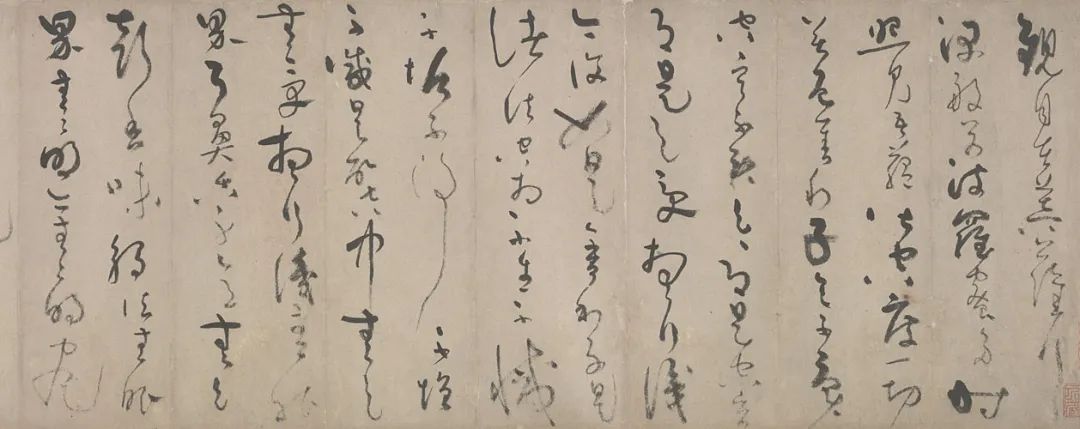 觀自在菩薩行
深般若波羅蜜多時
照見五蘊皆空度一切
苦厄舍利子色不異
空空不異色色即是空空
即是色受想行識
亦復如是舍利子是
諸法空相不生不滅
不垢不淨不增
不減是故空中無色
無受想行識無眼
界耳鼻舌身意無色
聲香味觸法無眼
界無無明亦無無明盡